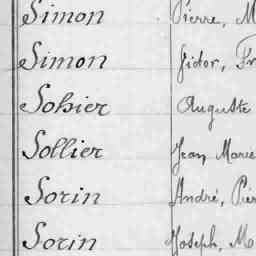 Simon Pierre, M
Simon Isidor, Fr
Sohier Auguste
Sollier Jean Marie
Sorin André, Pier
Sorin Joseph, M